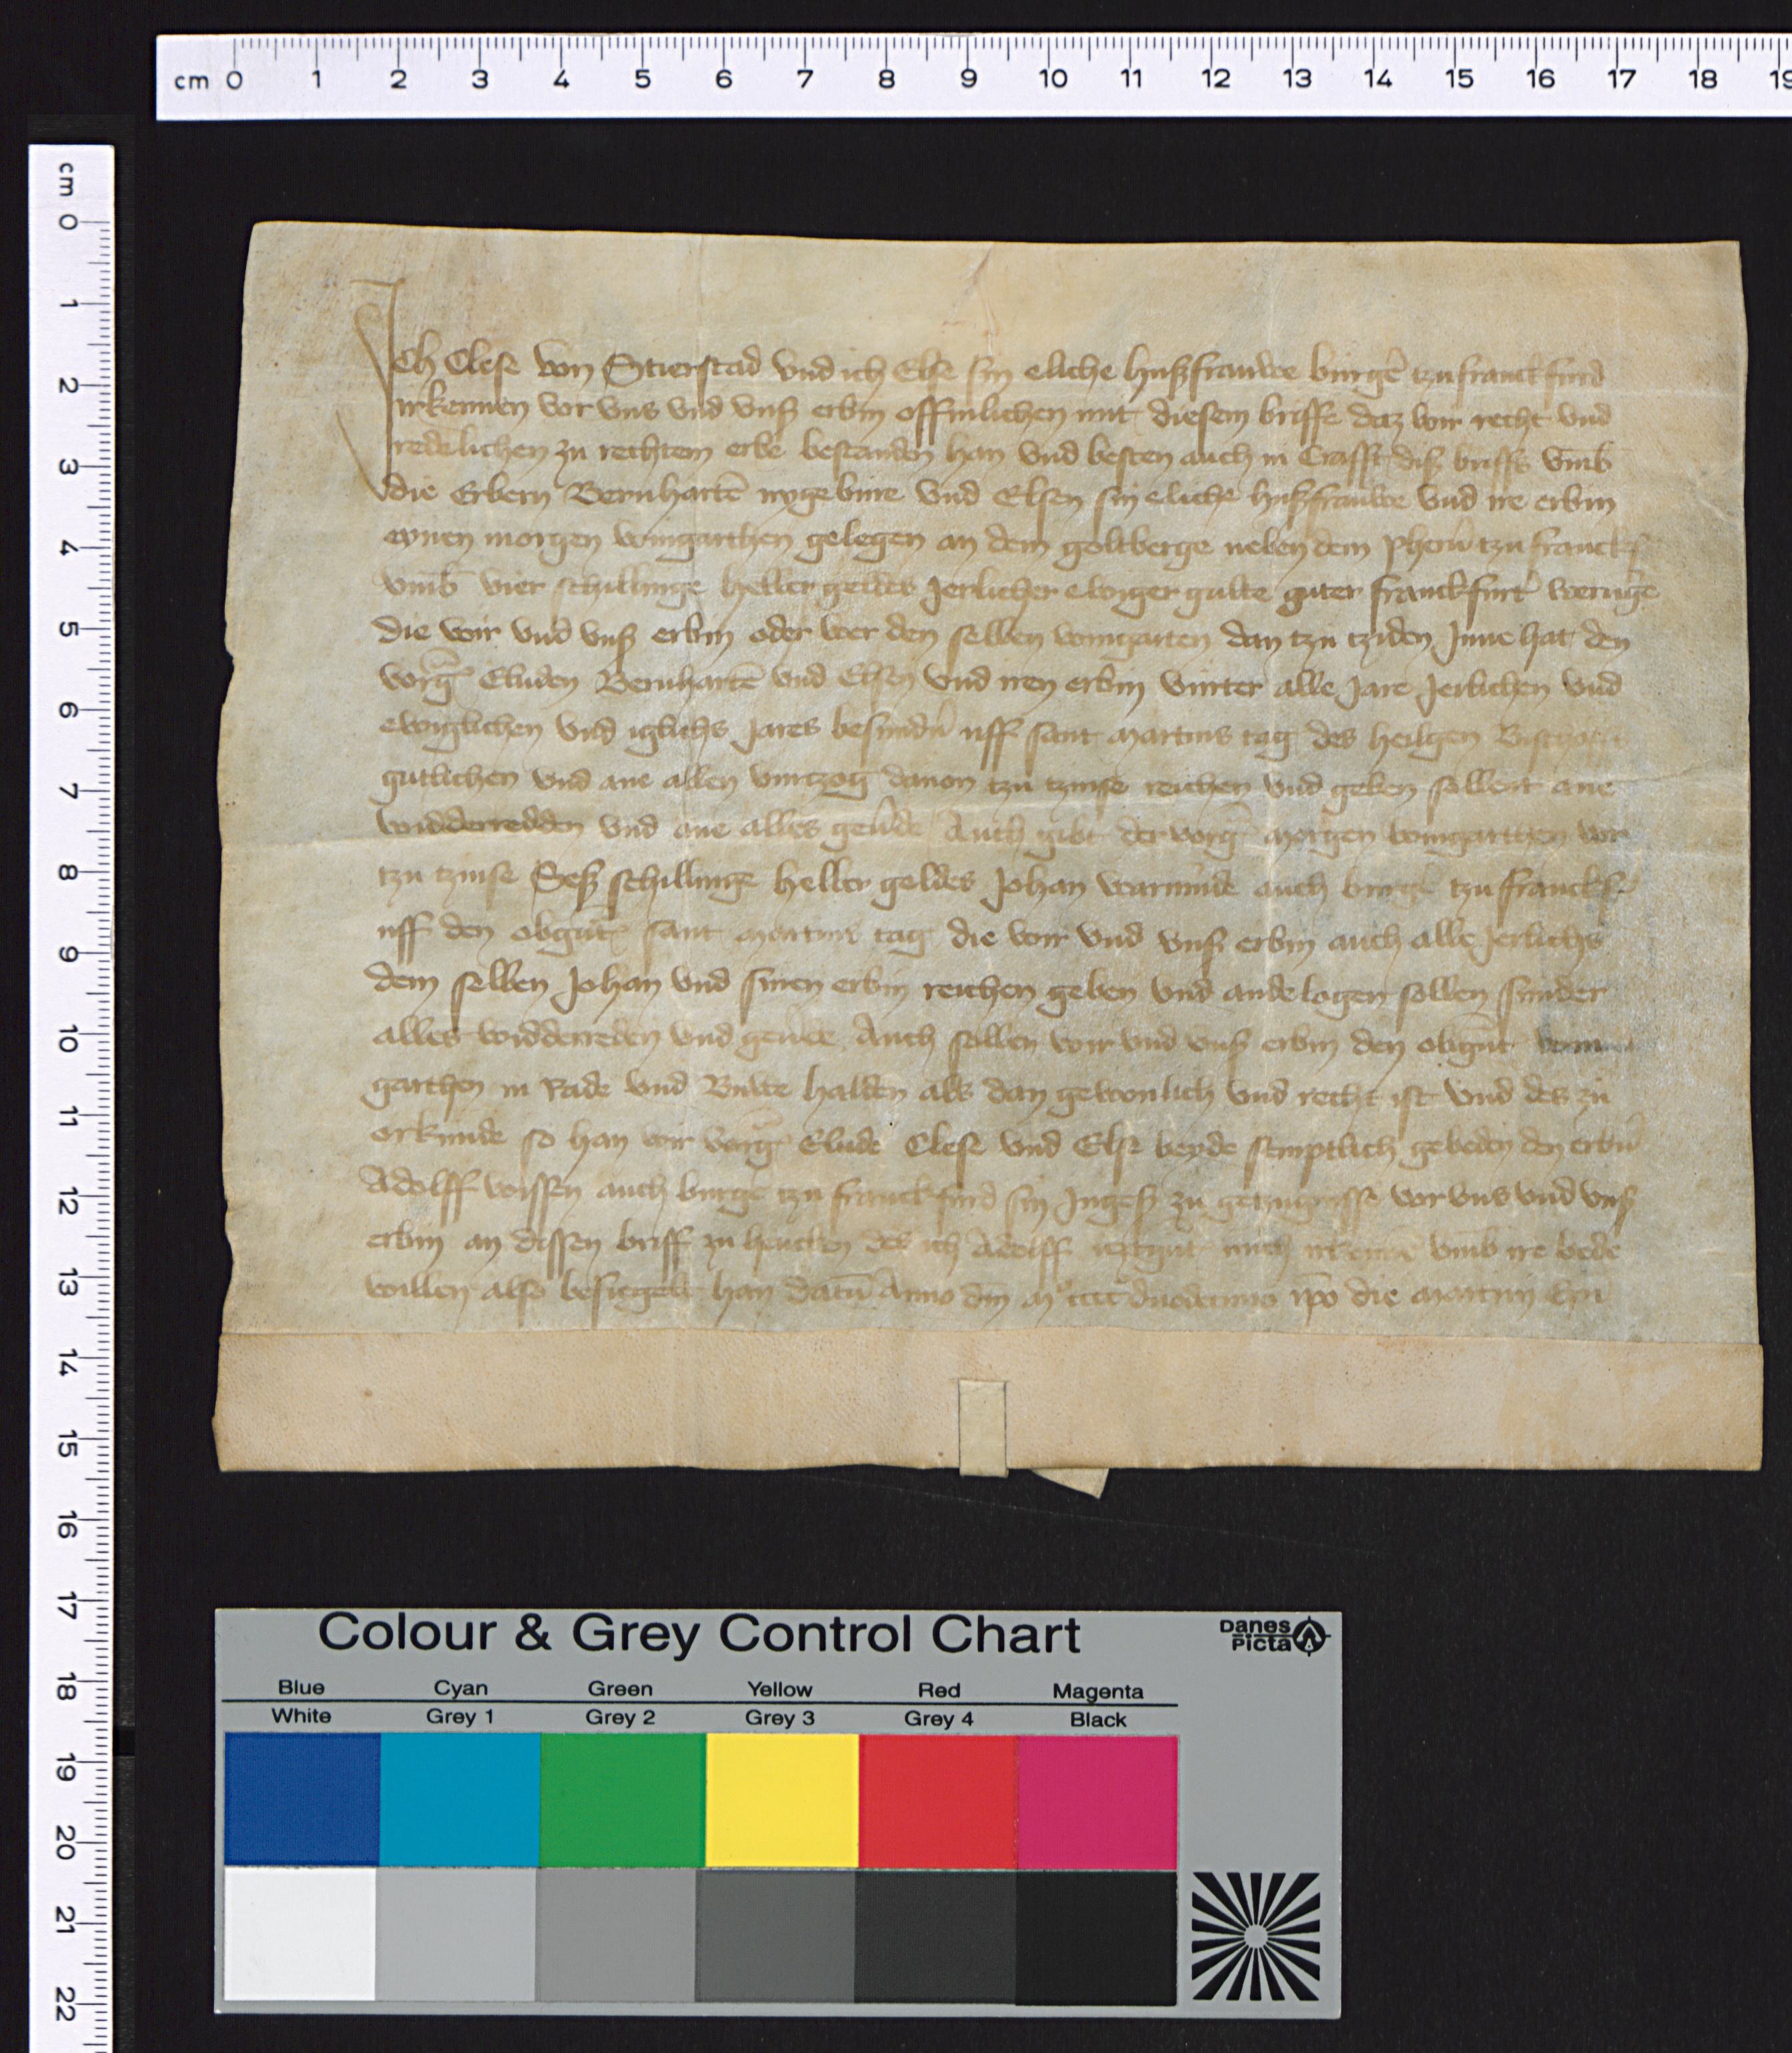 cm 0 1 2 3 4 5 6 7 8 9 10 11 12 13 14 15 16 17 18 19
cm 0 1 2 3 4 5 6 7 8 9 10 11 12 13 14 15 16 17 18 19 20 21 22
Ich Clese von Stierstad vnd ich Else sin eliche hußfrauwe burgẽ tzu franckfurd
irkennen vor vns vnd vnß erbin offinlichen mit diesem briffe daz wir recht vnd
redelichen zu rechtem erbe bestanden han vnd besten auch in Crafft diß briffs vmb
die Erbern Bernhartẽ nygebure vnd Elsen sin eliche hußfrauwe vnd ire erbin
eynen morgen wingarthen gelegen an dem goltberge neben dem tzu franckf
vmb vier schillinge heller geldes Jerlicher ewiger gulte guter franckfurt weruge
die wir vnd vnß erbin oder wer den selben wingarten dan tzu tziden Inne hat den
vorg Eluden Bernhartẽ vnd Elsen vnd iren erbin vurter alle Jare Jerlichen vnd
ewiglichen vnd iglichs Jares besundn uff sant martins tag des heilgen Bischoffs
gutlichen vnd ane allen vurtzog dauon tzu tzinse reichen vnd geben sollent ane
widderredden vnd ane alles geude Auch gibt der vorg morgen wingartten vor
tzu tzinse Seß schillinge heller geldes Johan warmude auch burgẽ tzu franckf
uff den obgũt sant martins tag die wir vnd vnß erbin auch alle Jerlichs
dem selben Johan vnd sinen erbin reichen geben vnd andelogen sollen sunder
alles widderreden vnd geude Auch sollen wir vnd vnß erbin den obgnt
garthen in Rade vnd Buwe halden als dan gewonlich vnd recht ist vnd des zu
orkunde so han wir vorg Elude Clese vnd Else beyde semptlich gebeden den erbn
Adolff wissen auch burgẽ tzu franckfurd sin Ingeß zu getzugnisse vor vns vnd vnß
erbin an dissen briff zu hencken des ich Adolff itztgnt mich irkenne vmb ire bede
willen also besiegelt han datũ Anno dm mº cccc duodecimo ipo die martini
Colour & Grey Control Chart
Danes Picta
Blue Cyan Green Yellow Red Magenta
White Grey 1 Grey 2 Grey 3 Grey 4 Black